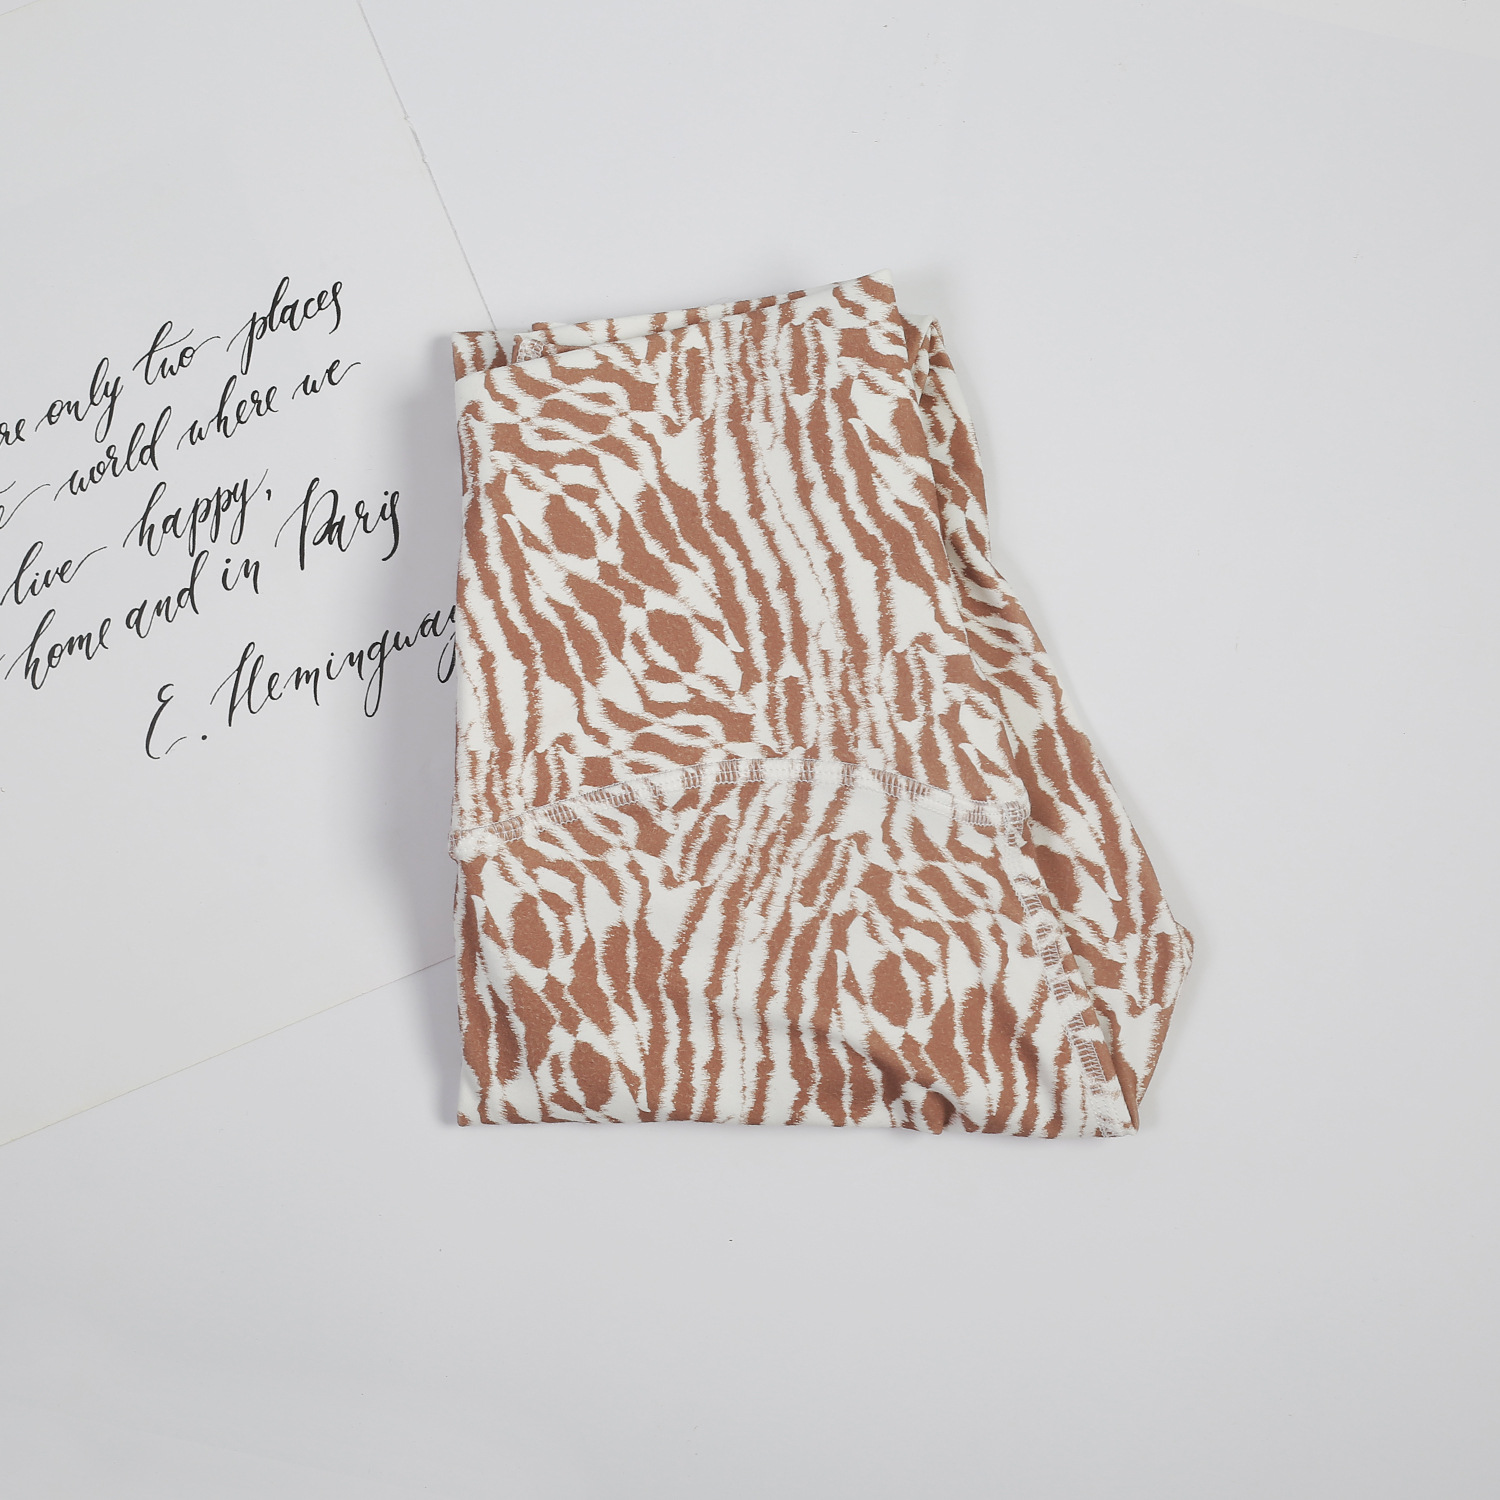 re only two places
world where we
live happy,
home and in Paris
E. Hemingway